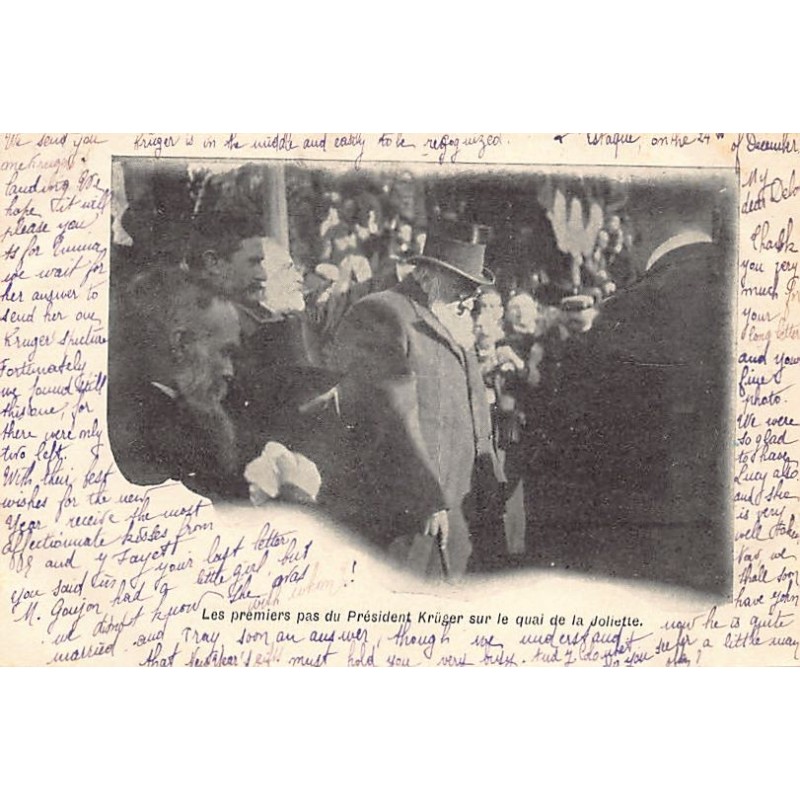 Krüger is in the middle and easily to be regognized.
Estaque, on the 24th of December,
My
dear
Thank
you very
much for
your
long letter
and your
fine
photo.
We were
so glad
to have
Lucy also
and she
is very
well taken
Now, we
shall soon
have John
now he is quite
a little way
We send you
one Kruger's
landing We
hope it will
please you
As for Emma
we wait for
her answer to
send her one
Kruger picture
Fortunately
we found still
this one, for
there were only
two left.
With their best
wishes for the new
Year receive the most
affectionnate kisses from
and
your last letter
you said us
M. Goujon had a little girl but
we didn't know she was
married - with whom?!
and Pray soon an answer, though we understand
that New Year's must hold you very busy. And
Les premiers pas du Président Krüger sur le quai de la Joliette.